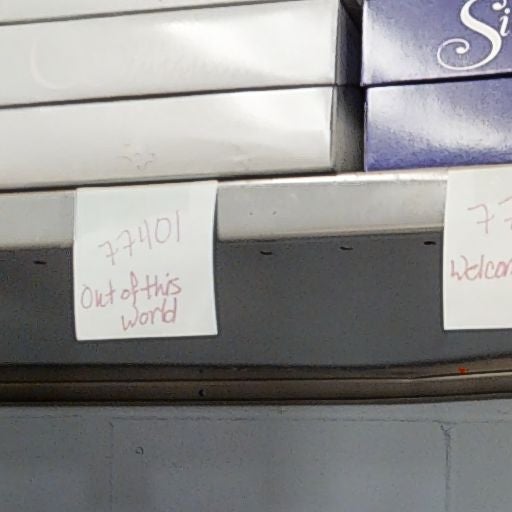 Si
77401
Out of this
World
77
Welcom